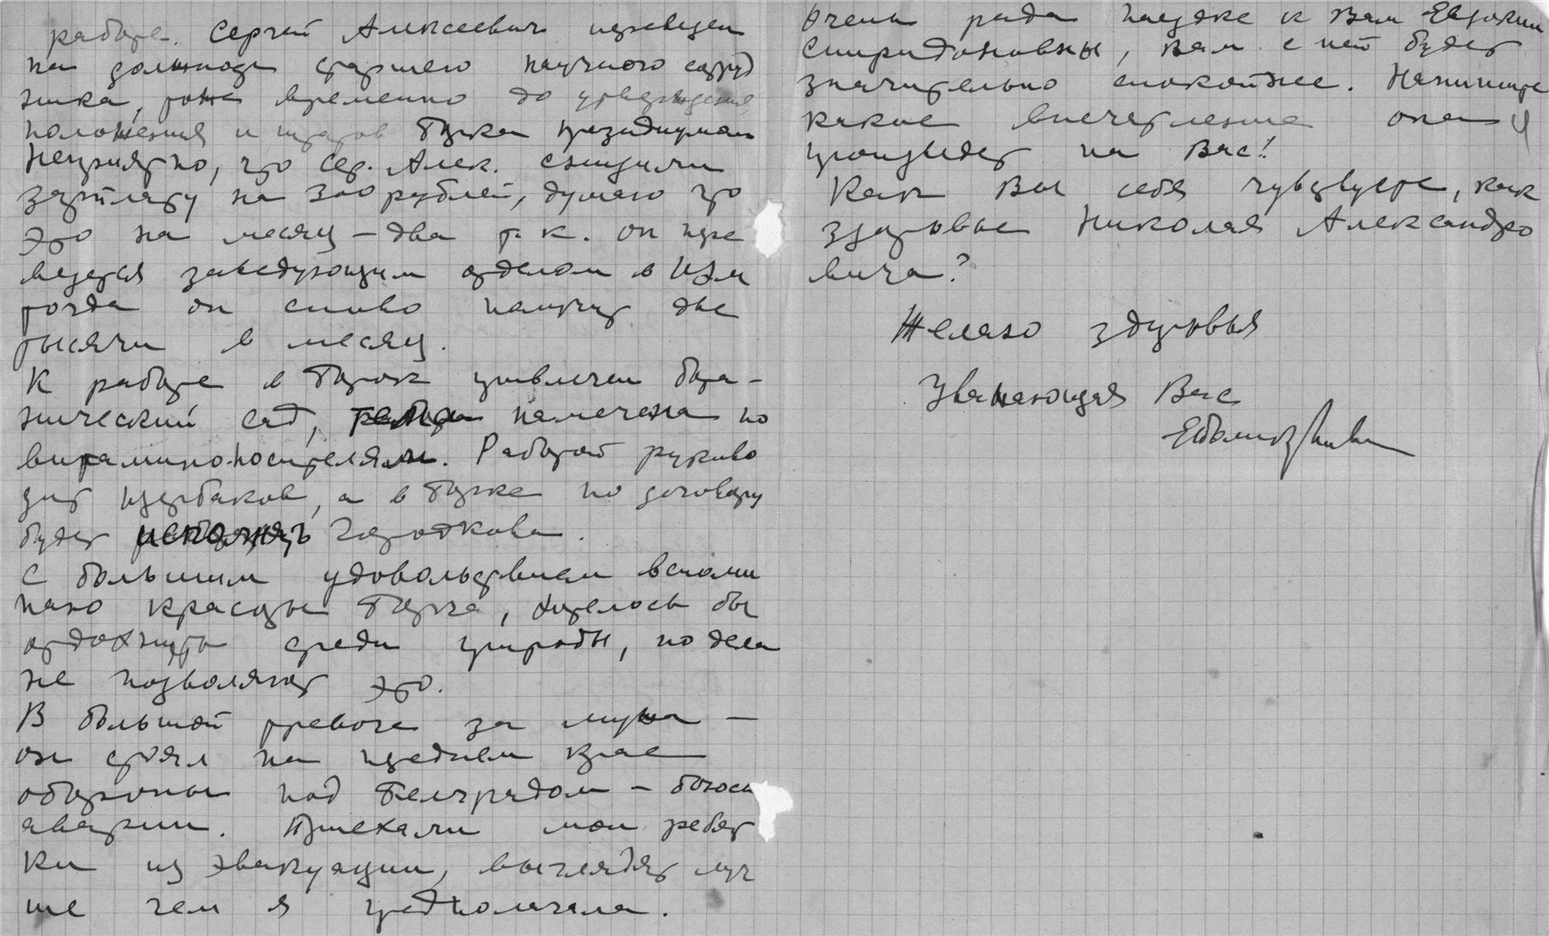 работе. Сергей Алексеевич переведен
на должность старшего научного сотруд
ника, тоже временно до утверждения
положения и штатов Парка президиумом
Неприятно, что Сер. Алек. снизили
зарплату на 300 рублей, думаю что
это на месяц – два т. к. он пере
ведется заведующим отделом в
тогда он снова получит две
тысячи в месяц.
К работе в Парке привлечен бота-
нический сад, тема намечена по
витаминоносителям. Работой руково
дит Щербаков, а в Парке по договору
будет исполнять Городкова.
С большим удовольствием вспоми
наю красоты Парка, хотелось бы
отдохнуть среди природы, но дела
не позволяют это.
В большой тревоге за мужа –
он стоял на переднем крае
обороны под Белградом – боюсь
аварии. Приехали мои ребят
ки из эвакуации, выглядят луч
ше чем я предполагала.
Очень рада поездке к Вам Евдокии
Спиридоновны, Вам с ней будет
значительно спокойнее. Напишите
какое впечатление она
произведет на Вас!
Как Вы себя чувствуете, как
здоровье Николая Александро
вича?
Желаю здоровья
Уважающая Вас